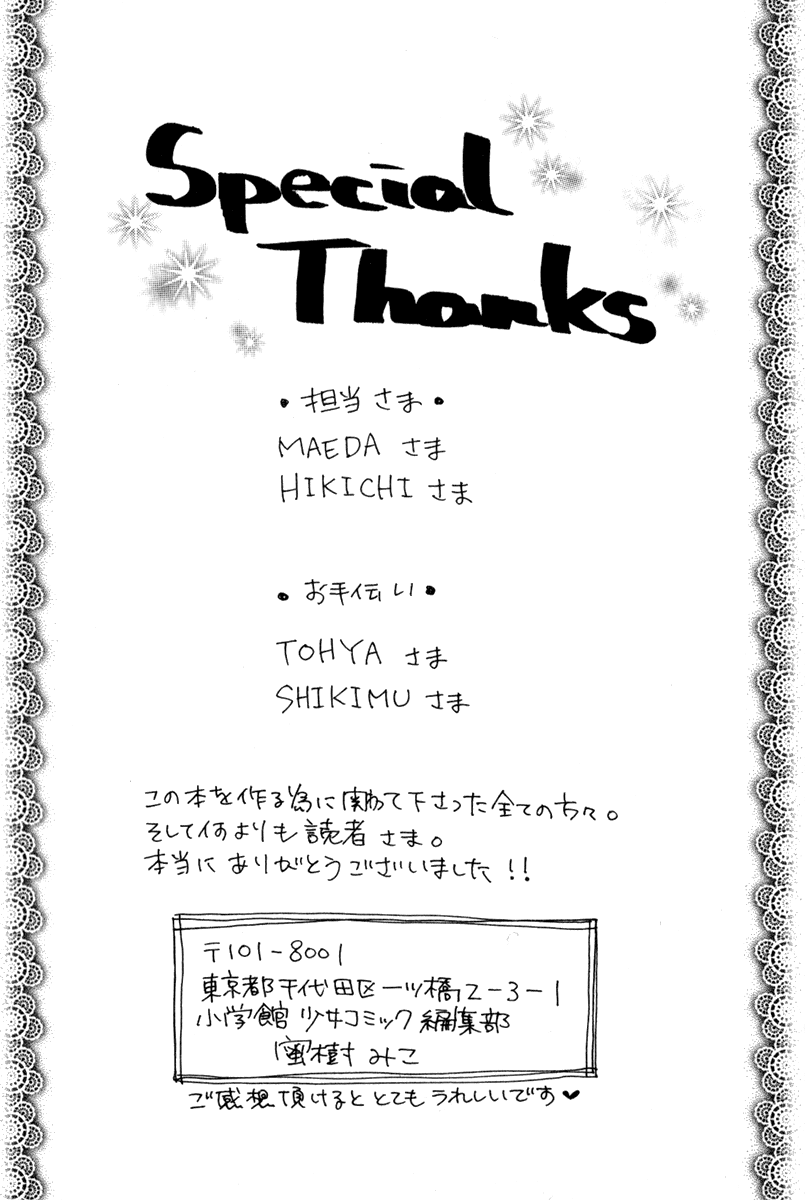 Special
Thanks
• 担当さま •
MAEDA さま
HIKICHI さま
• お手伝い •
TOHYA さま
SHIKIMU さま
この本を作る為に関わって下さった全ての方々。
そして何よりも読者さま。
本当にありがとうございました!!
〒101-8001
東京都千代田区一ツ橋2-3-1
小学館 少女コミック編集部
蜜樹みこ
ご感想頂けるととてもうれしいです♥